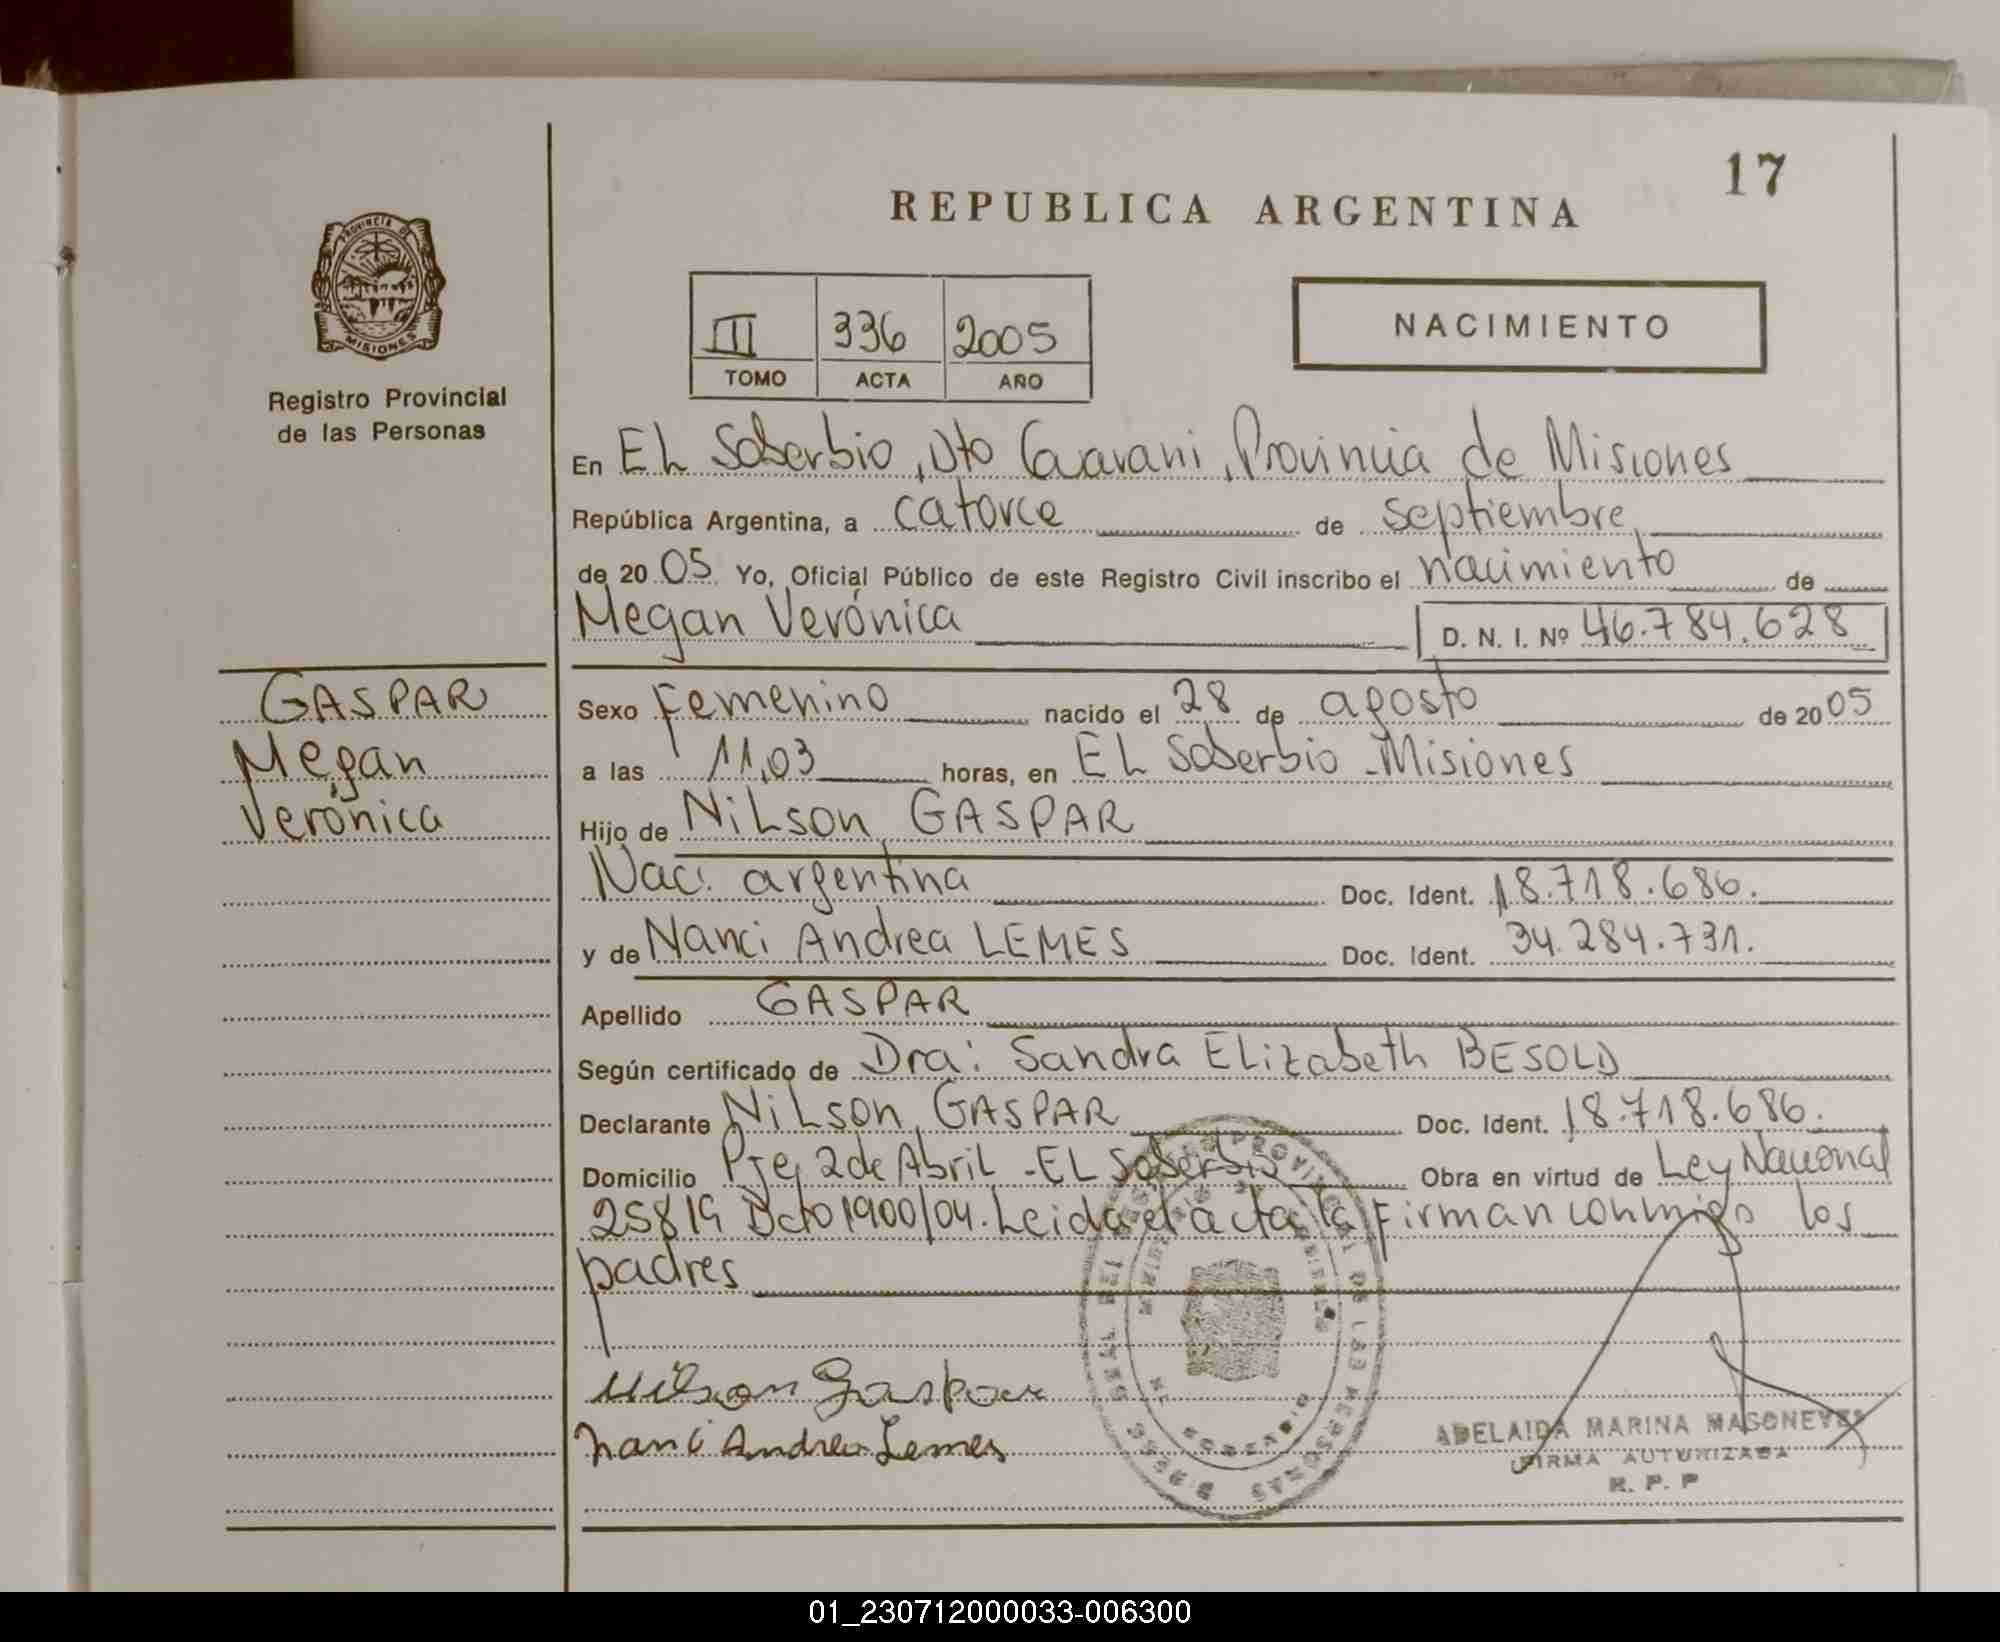 17
REPUBLICA ARGENTINA
PROVINCIA DE
MISIONES
Registro Provincial
de las Personas
III 336 2005
TOMO ACTA AÑO
NACIMIENTO
En EL Soberbio, Dto Guarani, Provincia de Misiones
República Argentina, a catorce de septiembre
de 2005 Yo, Oficial Público de este Registro Civil inscribo el nacimiento de
Megan Verónica D. N. I. Nº 46.784.628
GASPAR
Megan
Verónica
Sexo Femenino nacido el 28 de agosto de 2005
a las 11,03 horas, en EL Soberbio - Misiones
Hijo de NiLson GASPAR
Nac. argentina Doc. Ident. 18.718.686.
y de Nanci Andrea LEMES Doc. Ident. 34.284.731.
Apellido GASPAR
Según certificado de Dra: Sandra ELizabeth BESOLD
Declarante NiLson GASPAR Doc. Ident. 18.718.686.
Domicilio Pje, 2 de AbriL - EL Soberbio Obra en virtud de Ley Nacional
25819 Dcto 1900/04. Leida el acta la Firman conmigo los
padres
Nilson Gaspar
Nanci Andrea Lemes
PROVINCIAL DE LAS PERSONAS
ADELAIDA MARINA MASONEYES
FIRMA AUTORIZADA
R. P. P
01_230712000033-006300